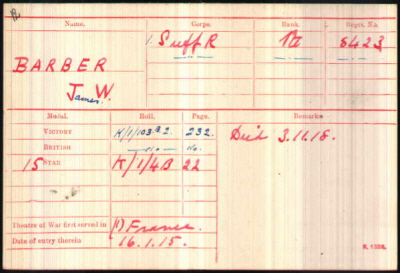 Name. Corps. Rank. Regtl. No.
1. Suff R Pte 8423
BARBER
James. W.
Medal. Roll. Page. Remarks
VICTORY K/1/103B2. 232. Died 3.11.18.
BRITISH —do— do.
15 STAR K/1/4B 22
Theatre of War first served in (1) France.
Date of entry therein 16.1.15.
K. 1380.